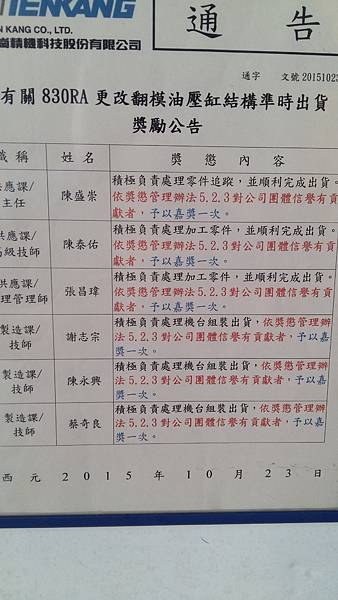 TENKANG
通 告
N KANG CO., LTD.
尚精機科技股份有限公司
通字 文號2015102
有關830RA更改翻模油壓缸結構準時出貨
獎勵公告
職稱 姓名 獎懲內容
供應課/
主任
陳盛崇
積極負責處理零件追蹤，並順利完成出貨。
依獎懲管理辦法5.2.3對公司團體信譽有貢
獻者，予以嘉獎一次。
供應課/
高級技師
陳泰佑
積極負責處理加工零件，並順利完成出貨。
依獎懲管理辦法5.2.3對公司團體信譽有貢
獻者，予以嘉獎一次。
供應課/
理管理師
張昌瑋
積極負責處理加工零件，並順利完成出貨。
依獎懲管理辦法5.2.3對公司團體信譽有貢
獻者，予以嘉獎一次。
製造課/
技師
謝志宗
積極負責處理機台組裝出貨，依獎懲管理辦
法5.2.3對公司團體信譽有貢獻者，予以嘉
獎一次。
製造課/
技師
陳永興
積極負責處理機台組裝出貨，依獎懲管理辦
法5.2.3對公司團體信譽有貢獻者，予以嘉
獎一次。
製造課/
技師
蔡奇良
積極負責處理機台組裝出貨，依獎懲管理辦
法5.2.3對公司團體信譽有貢獻者，予以嘉
獎一次。
西元 2015 年 10 月 23 日